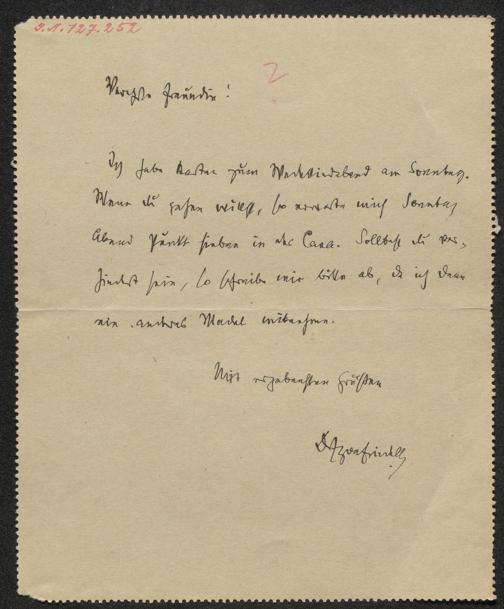 I.N. 127.252
2
Verehrte Freundin!
Ich habe Karten zum Wedekindabend am Sonntag.
Wenn du gehen willst, so erwarte mich Sonntag
Abend Punkt sieben in der Casa. Solltest du ver-
hindert sein, so schreibe mir bitte ab, da ich dann
ein anderes Mädel mitnehme.
Mit ergebensten Grüßen
Friedell